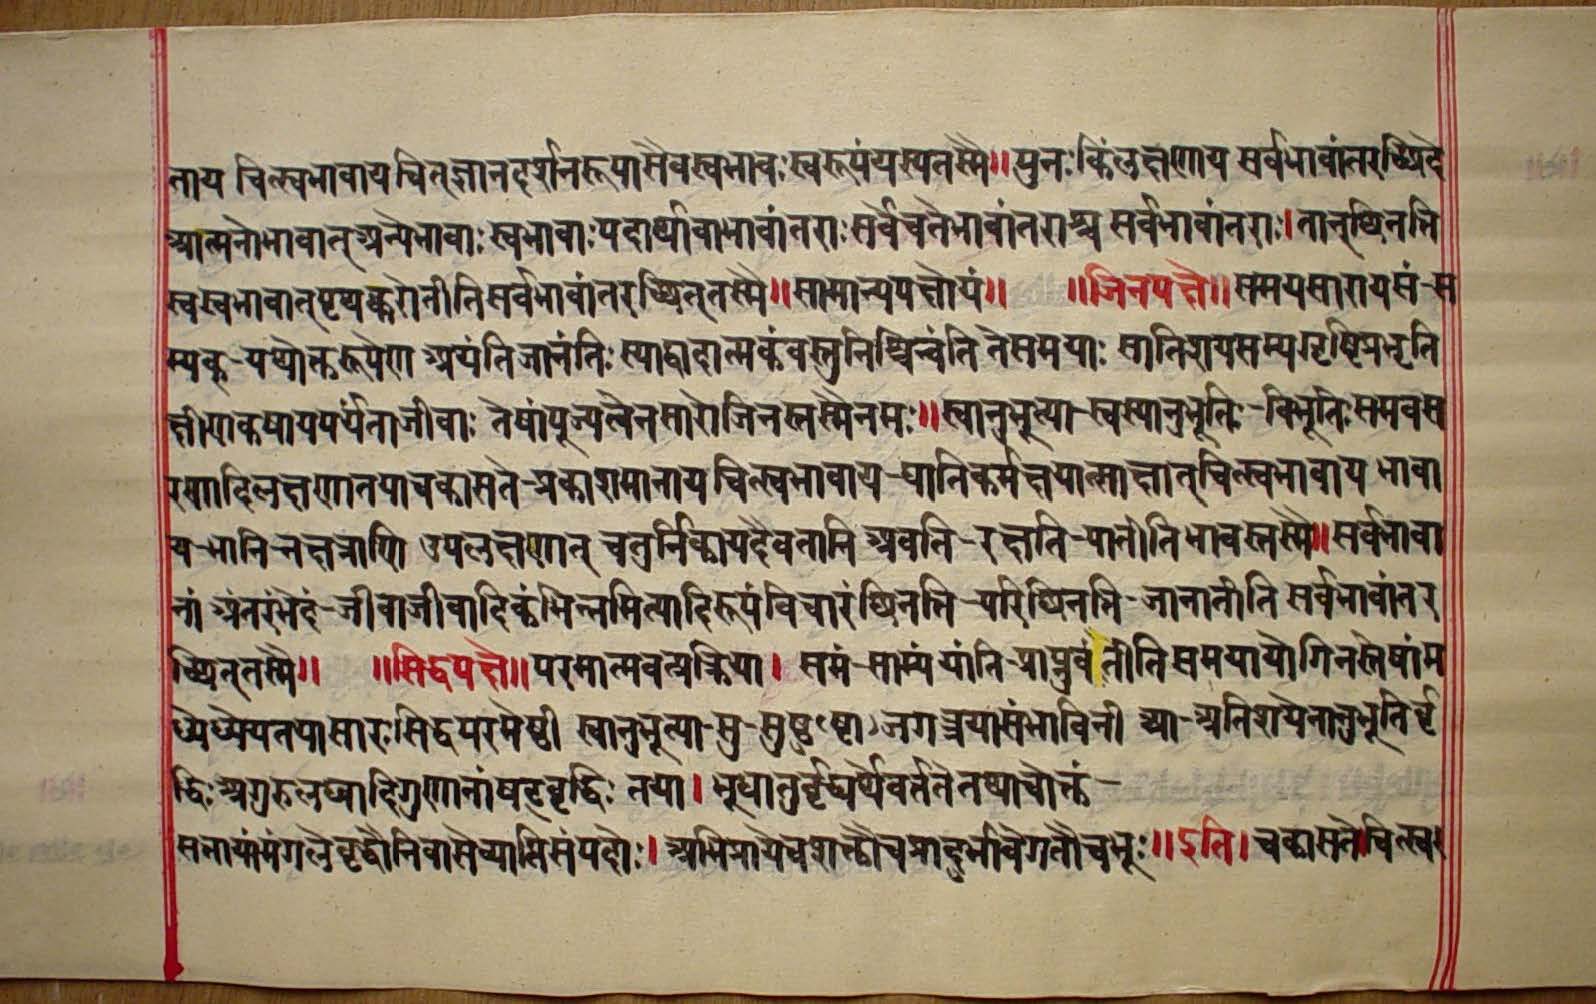 ताय चित्स्वभावाय चित् ज्ञानदर्शनरूपा सैव स्वभावः स्वरूपं यस्य तस्मै ॥ पुनः किं लक्षणाय सर्वभावांतरच्छिदे
आत्मनो भावात् अन्ये भावाः स्वभावाः पदार्था वा भावांतराः सर्वे च ते भावांतराश्च सर्वभावांतराः । तान् छिनत्ति
स्वस्वभावात् पृथक्करोतीति सर्वभावांतरच्छित् तस्मै ॥ सामान्यपक्षोयं ॥ ॥ जिनपक्षे ॥ समयसाराय सं - स
म्यक् - यथोक्तरूपेण अयंति जानंति स्याद्वादात्मकं वस्तु निश्चिन्वंति ते समयाः सातिशयसम्यग्दृष्टिप्रभृति
क्षीणकषायपर्यंता जीवाः तेषां पूज्यत्वेन सारो जिनस्तस्मै नमः ॥ स्वानुभूत्या - स्वस्यानुभूतिः - विभूतिः समवस
रणादिलक्षणा तया चकासते - प्रकाशमानाय चित्स्वभावाय - घातिकर्मक्षयात्साक्षात् चित्स्वभावाय भावा
य - भानि - नक्षत्राणि उपलक्षणात् चतुर्निकायदेवतानि अवति - रक्षति - पातीति भावस्तस्मै ॥ सर्वभावा
नां अंतरं भेदं - जीवाजीवादिकं भिन्नमित्यादिरूपं विचारं छिनत्ति - परिछिनत्ति - जानातीति सर्वभावांतर
च्छित् तस्मै ॥ ॥ सिद्धपक्षे ॥ परमात्मवत्प्रक्रिया । समं - साम्यं यांति - प्राप्नुवंतीति समया योगिनस्तेषां म
ध्ये ध्येयतया सारः सिद्धपरमेष्ठी स्वानुभूत्या - सु - सुष्ठु जगत्त्रयासंभाविनी आ - अतिशयेनानुभूतिर्वृ
द्धिः अगुरुलघ्वादिगुणानां षट्वृद्धिः तया । भूधातुर्वृद्ध्यर्थे वर्तते तथा चोक्तं -
सत्तायां मंगले वृद्धौ निवासे व्याप्तिसंपदोः । अभिप्राये च शक्तौ च प्रादुर्भावे गतौ च भूः ॥ इति । चकासते चित्स्वर